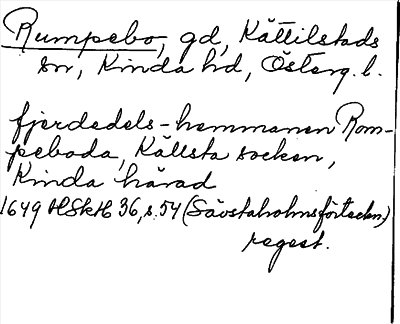 Rumpebo, gd, Kättilstads
sn, Kinda hd, Österg. l.
fjerdedels-hemmanen Rom-
peboda, Källsta socken,
Kinda härad
1649 HSkH 36, s. 54 (Sävstaholmsförteckn.)
regest.